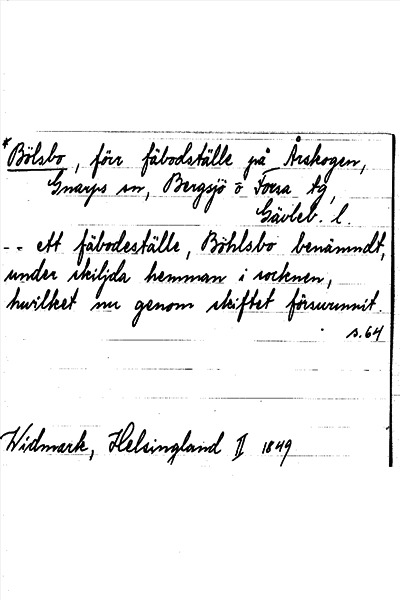 *Bölsbo, förr fäbodställe på Årskogen,
Gnarps sn, Bergsjö o Forsa tg,
Gävleb. l.
-- ett fäbodeställe, Böhlsbo benämndt,
under skiljda hemman i socknen,
hwilket nu genom skiftet försvunnit.
s. 64
Widmark, Helsingland II 1849